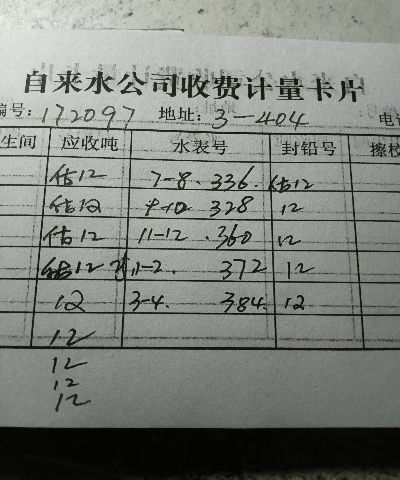 自来水公司收费计量卡片
编号: 172097 地址: 3-404 电
生间 应收吨 水表号 封铅号 擦校
估12 7-8. 336. 估12
估12 9-10 328 12
估12 11-12 .360 12
估12 1-2. 372 12
12 3-4. 384. 12
12
12
12
12